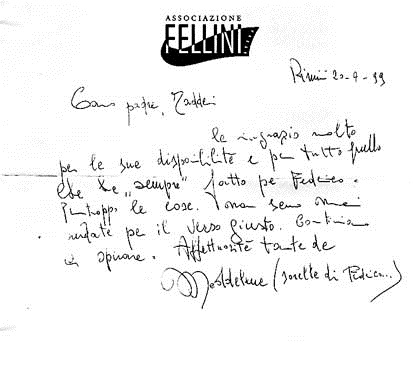 ASSOCIAZIONE
FELLINI
Rimini 20-9-99
Caro padre,
la ringrazio molto
per la sua disponibilità e per tutto quello
che ha "sempre" fatto per Federico.
Purtroppo le cose non sono mai
andate per il verso giusto. Continuo
a sperare. Affettuosità tante da
Maddalena (sorella di Federico)